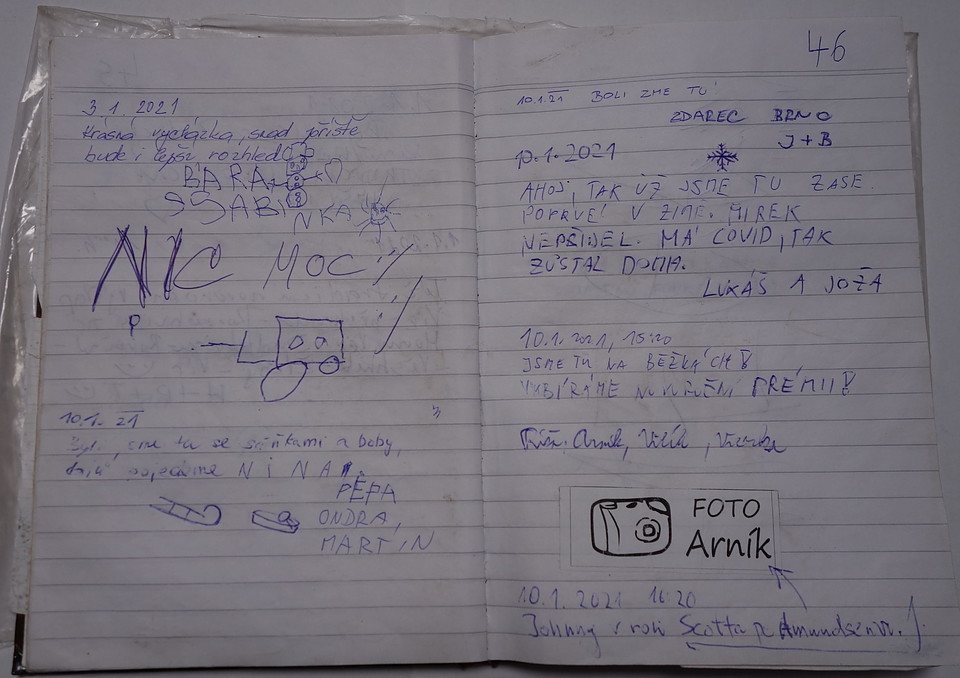 3.1.2021
Krásná vycházka, snad příště
bude i lepší rozhled
BÁRA
SABI
NKA
NIC MOC
P
10.1. 21
sme tu se sáňkama a boby,
NINA
PÉPA
ONDRA,
MARTIN
46
10.1.21 BOLI ZME TU!
ZDAREC BRNO
J+B
10.1.2021
AHOJ, TAK UŽ JSME TU ZASE.
POPRVÉ V ZIMĚ. MIREK
NEPŠIJEL. MÁ COVID, TAK
ZŮSTAL DOMA.
LUKÁŠ A JOŽA
10.1.2021, 15:20
JSME TU NA BĚŽKÁCH!
VYBÍRÁME PRÉMII!
Arník, Vítík,
FOTO
Arník
10.1.2021 16:20
Johnny v roli Scotta a Amundsena.